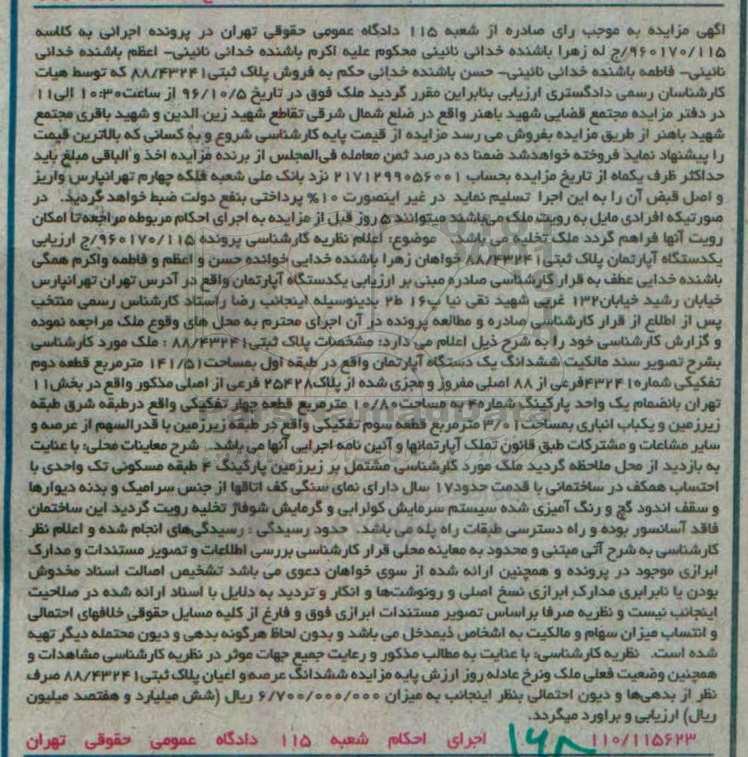 آگهی مزایده به موجب رای صادره از شعبه ۱۱۵ دادگاه عمومی حقوقی تهران در پرونده اجرائی به کلاسه
۹۶۰۱۷۰/۱۱۵/ج له زهرا باشنده خدائی نائینی محکوم علیه اکرم باشنده خدائی نائینی- اعظم باشنده خدائی
نائینی- فاطمه باشنده خدائی نائینی- حسن باشنده خدائی حکم به فروش پلاک ثبتی ۸۸/۴۳۲۴۱ که توسط هیات
کارشناسان رسمی دادگستری ارزیابی بنابراین مقرر گردید ملک فوق در تاریخ ۹۶/۱۰/۵ از ساعت ۱۰:۳۰ الی ۱۱
در دفتر مزایده مجتمع قضایی شهید باهنر واقع در ضلع شمال شرقی تقاطع شهید زین الدین و شهید باقری مجتمع
شهید باهنر از طریق مزایده بفروش می رسد مزایده از قیمت پایه کارشناسی شروع و به کسانی که بالاترین قیمت
را پیشنهاد نماید فروخته خواهدشد ضمنا ده درصد ثمن معامله فی المجلس از برنده مزایده اخذ و الباقی مبلغ باید
حداکثر ظرف یکماه از تاریخ مزایده بحساب ۲۱۷۱۲۹۹۰۵۶۰۰۱ نزد بانک ملی شعبه فلکه چهارم تهرانپارس واریز
و اصل قبض آن را به این اجرا تسلیم نماید در غیر اینصورت ۱۰% پرداختی بنفع دولت ضبط خواهد گردید. در
صورتیکه افرادی مایل به رویت ملک می باشند میتوانند ۵ روز قبل از مزایده به اجرای احکام مربوطه مراجعه تا امکان
رویت آنها فراهم گردد ملک تخلیه می باشد. موضوع: اعلام نظریه کارشناسی پرونده ۹۶۰۱۷۰/۱۱۵/ج ارزیابی
یکدستگاه آپارتمان پلاک ثبتی ۸۸/۴۳۲۴۱ خواهان زهرا باشنده خدایی خوانده حسن و اعظم و فاطمه واکرم همگی
باشنده خدایی عطف به قرار کارشناسی صادره مبنی بر ارزیابی یکدستگاه آپارتمان واقع در آدرس تهران تهرانپارس
خیابان رشید خیابان ۱۳۲ غربی شهید نقی نیا پ ۱۶ ط۲ بدینوسیله اینجانب رضا راستاد کارشناس رسمی منتخب
پس از اطلاع از قرار کارشناسی صادره و مطالعه پرونده در آن اجرای محترم به محل های وقوع ملک مراجعه نموده
و گزارش کارشناسی خود را به شرح ذیل اعلام می دارد: مشخصات پلاک ثبتی ۸۸/۴۳۲۴۱ : ملک مورد کارشناسی
بشرح تصویر سند مالکیت ششدانگ یک دستگاه آپارتمان واقع در طبقه اول بمساحت ۱۴۱/۵۱ مترمربع قطعه دوم
تفکیکی شماره ۴۳۲۴۱ فرعی از ۸۸ اصلی مفروز و مجزی شده از پلاک ۲۵۴۲۸ فرعی از اصلی مذکور واقع در بخش ۱۱
تهران بانضمام یک واحد پارکینگ شماره ۴ به مساحت ۱۰/۸۰ مترمربع قطعه چهار تفکیکی واقع درطبقه شرق طبقه
زیرزمین و یکباب انباری بمساحت ۳/۰۱ مترمربع قطعه سوم تفکیکی واقع در طبقه زیرزمین با قدرالسهم از عرصه و
سایر مشاعات و مشترکات طبق قانون تملک آپارتمانها و آئین نامه اجرایی آنها می باشد. شرح معاینات محلی: با عنایت
به بازدید از محل ملاحظه گردید ملک مورد کارشناسی مشتمل بر زیرزمین پارکینگ ۴ طبقه مسکونی تک واحدی با
احتساب همکف در ساختمانی با قدمت حدود ۱۷ سال دارای نمای سنگی کف اتاقها از جنس سرامیک و بدنه دیوارها
و سقف اندود گچ و رنگ آمیزی شده سیستم سرمایش کولرابی و گرمایش شوفاژ تخلیه رویت گردید این ساختمان
فاقد آسانسور بوده و راه دسترسی طبقات راه پله می باشد. حدود رسیدگی : رسیدگی های انجام شده و اعلام نظر
کارشناسی به شرح آتی مبتنی و محدود به معاینه محلی قرار کارشناسی بررسی اطلاعات و تصویر مستندات و مدارک
ابرازی موجود در پرونده و همچنین ارائه شده از سوی خواهان دعوی می باشد تشخیص اصالت اسناد مخدوش
بودن یا نابرابری مدارک ابرازی نسخ اصلی و رونوشت ها و انکار و تردید به دلایل با اسناد ارائه شده در صلاحیت
اینجانب نیست و نظریه صرفا براساس تصویر مستندات ابرازی فوق و فارغ از کلیه مسایل حقوقی خلافهای احتمالی
و انتساب میزان سهام و مالکیت به اشخاص ذیمدخل می باشد و بدون لحاظ هرگونه بدهی و دیون محتمله دیگر تهیه
شده است. نظریه کارشناسی: با عنایت به مطالب مذکور و رعایت جمیع جهات موثر در نظریه کارشناسی مشاهدات و
همچنین وضعیت فعلی ملک ونرخ عادله روز ارزش پایه مزایده ششدانگ عرصه و اعیان پلاک ثبتی ۸۸/۴۳۲۴۱ صرف
نظر از بدهی ها و دیون احتمالی بنظر اینجانب به میزان ۶/۷۰۰/۰۰۰/۰۰۰ ریال (شش میلیارد و هفتصد میلیون
ریال) ارزیابی و براورد میگردد.
۱۱۰/۱۱۵۶۲۳ اجرای احکام شعبه ۱۱۵ دادگاه عمومی حقوقی تهران